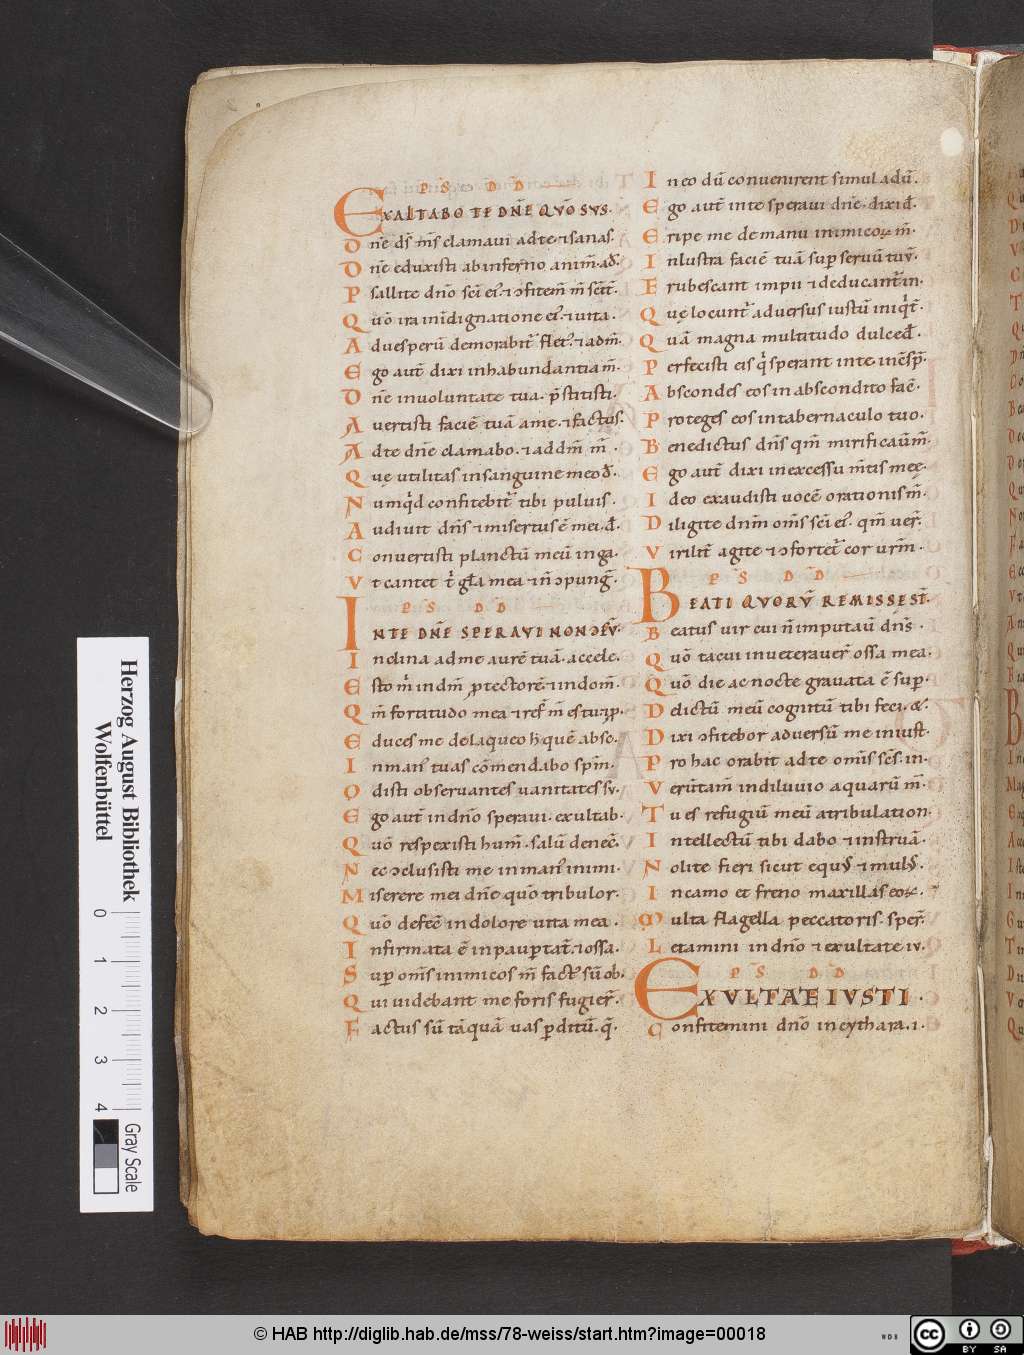 PS DD
EXALTABO TE DN̄E QVŌ SVS.
D nē ds̄ m̄s clamavi adte ⁊ sanas.
D nē eduxisti abinferno anim̄. ad̄.
P sallite dnō sc̄i ei᾽. ⁊ ɔfitem̄ m̄
Q uō ira inīdignatione ei᾽. ⁊ uita.
A duesperū demorabit᷑ flet᾽. ⁊ adm̄.
E go aut̄ dixi inhabundantia m̄.
D nē inuoluntate tua. p̄stitisti.
A vertisti faciē tuā ame. ⁊ factus.
A dte dnē clamabo. ⁊ addm̄ m̄.
Q uę utilitas insanguine meo d̄.
N umqͥd confitebit᷑ tibi puluis.
A udiuit dn̄s ⁊ misertus ē mei. d̄.
C onvertisti planctū meū inga.
V t cantet tͥ gl̄a mea ⁊ n̄ ɔpunḡ.
PS DD
INTE DN̄E SPERAVI NON ɔFV̄.
I nclina adme aurē tuā. accele.
E sto mͥ indm̄ ꝓtectorē. ⁊ indom̄.
Q m̄ fortitudo mea ⁊ ref᷑ m̄ es tu. ⁊ ꝓp.
E duces me delaqueo h̄ quē absc.
I nman᾽ tuas cōmendabo spm̄.
O disti observantes vanitates sv.
E go aut̄ indnō speravi. exultab.
Q uō respexisti hum̄. salū. denec̄.
N ec ɔclusisti me inman᾽ inimi.
M iserere mei dnē quō tribulor.
Q uō defec̄ indolore uita mea.
I nfirmata ē inpauꝑtat̄. ⁊ ossa.
S uꝑ om̄s inimicos m̄ fact᾽ sū ob.
Q ui uidebant me foris fugier̄.
F actus sū tāquā uas ꝑditū. q̄.
I neo dū convenirent simul adū.
E go aut̄ inte speravi dnē. dixi d̄.
E ripe me demanu inimicoꝝ m̄.
I nlustra faciē tuā suꝑ servū tuū.
E rubescant impii ⁊ deducant᷑ in.
Q uę locunt᷑ adversus iustū iniqͥt̄.
Q uā magna multitudo dulced̄.
P erfecisti eis qͥ sperant inte. inc̄sp̄.
A bscondes eos in abscondito faē.
P roteges eos intabernaculo tuo.
B enedictus dn̄s qm̄ mirificaū m̄.
E go aut̄ dixi inexcessu m̄tis meę.
I deo exaudisti uocē orationis m̄.
D iligite dnm̄ om̄s sc̄i ei᾽. qm̄ uer̄.
V irilit᷑ agite ⁊ ɔfortet᷑ cor urm̄.
PS DD
BEATI QVORV̄ REMISSE ST̄.
B eatus uir cui n̄ imputaū dn̄s.
Q uō tacui inueteraver̄ ossa mea.
Q uō die ac nocte gravata ē suꝑ.
D elictū meū cognitū tibi feci. &.
D ixi ɔfitebor adversū me iniust̄.
P ro hac orabit adte omīs sc̄s. in.
V erūtam̄ indiluuio aquarū m̄.
T u es refugiū meū atribulation.
I ntellectū tibi dabo ⁊ instruā.
N olite fieri sicut equ᾽ ⁊ mul᾽.
I ncamo et freno maxillas eoꝝ.
M ulta flagella peccatoris. sper̄.
L etamini indnō ⁊ exultate iv.
PS DD
EXVLTATE IVSTI.
C onfitemini dnō incythara. i.
Herzog August Bibliothek
Wolfenbüttel
0 1 2 3 4
Gray Scale
© HAB http://diglib.hab.de/mss/78-weiss/start.htm?image=00018
WDB
cc BY SA